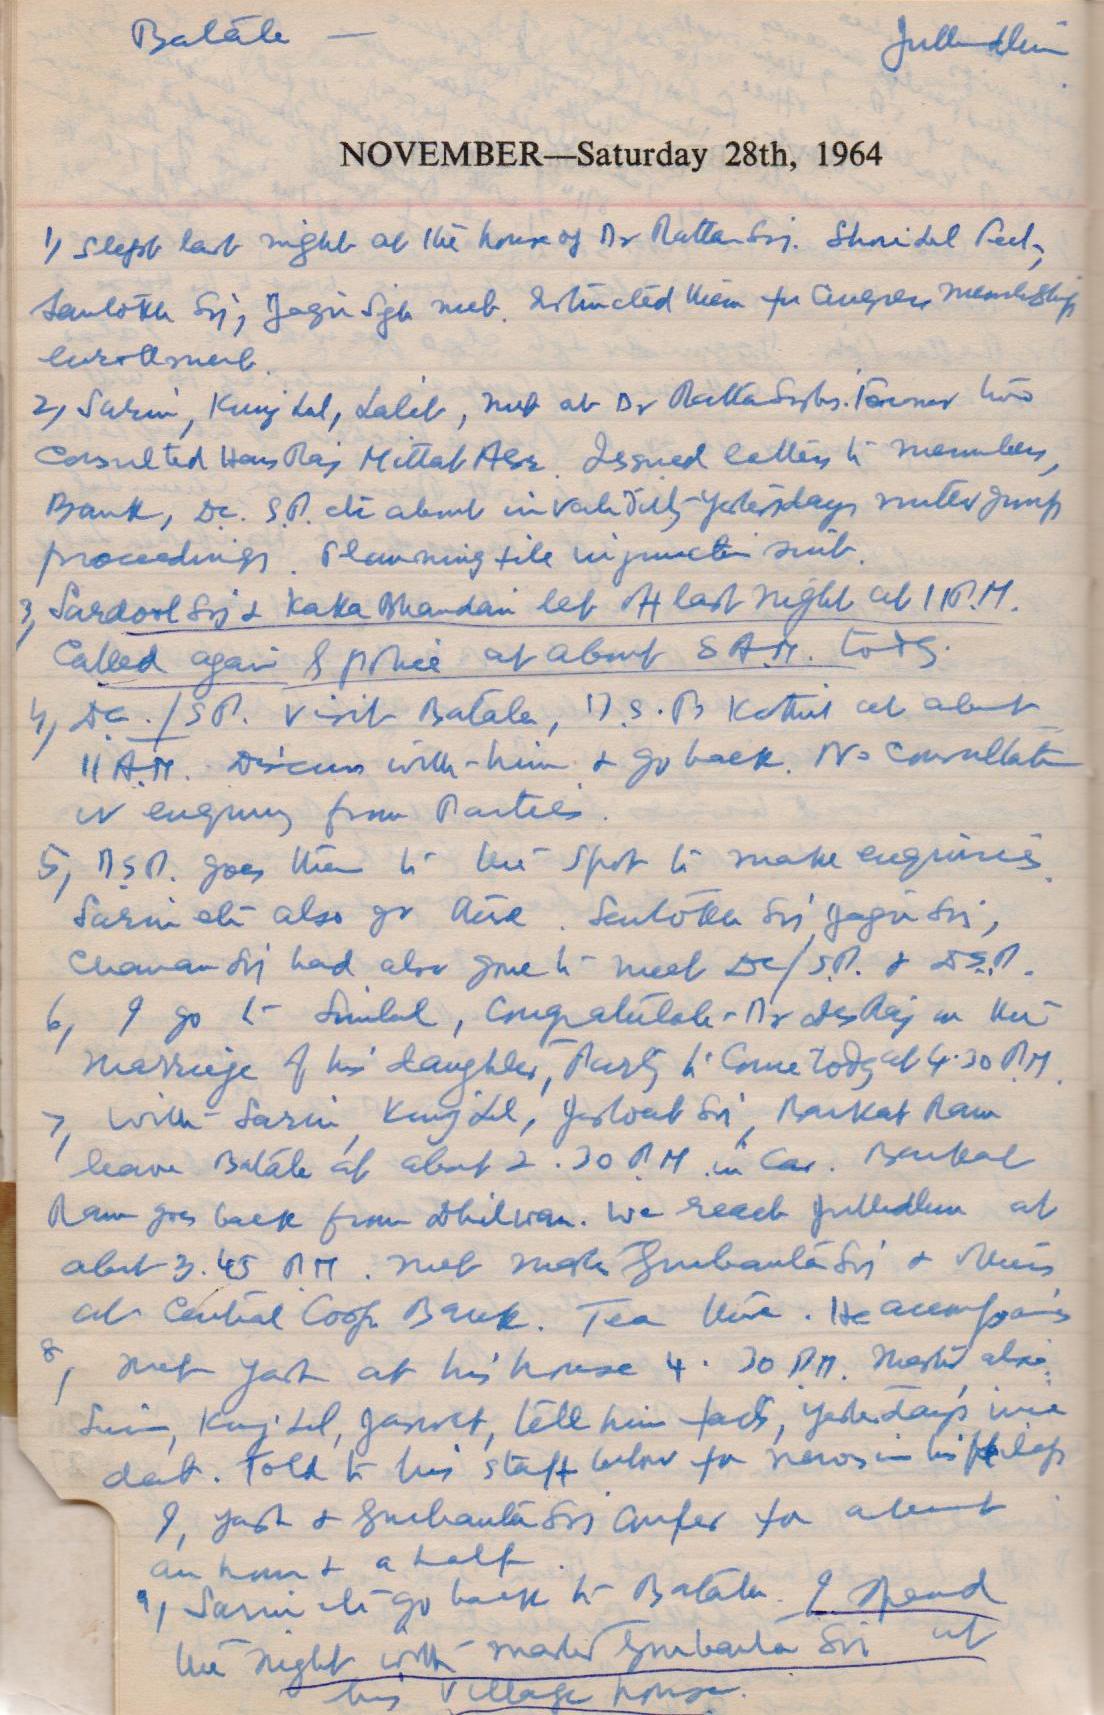 Batala — Jullundur
NOVEMBER—Saturday 28th, 1964
1, Slept last night at the house of Dr Rattan Sgs. Shori Lal
Santokh Sgs, Jagir Sgh met. Instructed them for Congress membership
enrollment.
2, Sarin, Kunj Lal, Lalit, met at Dr Rattan Sgs. Former two
consulted Hans Raj Mittal Adv. Issued letters to members,
Bank, Dc. S.P. etc about invalidity yesterdays
proceedings. Planning file injunction suit.
3, Sardool Sgs & Kaka Bhandari let off last night at 11 P.M.
Called again by police at about 8 A.M. tody.
4, Dc./S.P. visit Batala, D.S.P. at about
11 A.M. Discuss with him & go back. No consultation
or enquiry from Parties.
5, D.S.P. goes then to the spot to make enquiries.
Sarin etc also go there. Santokh Sgs, Jagir Sgs,
Chanan Sgs had also gone to meet Dc/S.P. & D.S.P.
6, I go to, Congratulate Dr Des Raj on the
marriage of his daughter, Party to come tody at 4.30 P.M.
7, With Sarin, Kunj Lal, Jaswant Sgs, Barkat Ram
leave Batala at about 2.30 P.M. in Car. Barkat
Ram goes back from Dhilwan. We reach Jullundur at
abut 3.45 P.M. met Master Gurbanta Sgs & others
at Central Coop Bank. Tea there. He accompanies
8, met Yash at his house 4.30 P.M. Master also.
Sarin, Kunj Lal, Jaswant, tell him facts, yesterday's inci
dent. Told to his staff below for news in his
I, Yash & Gurbanta Sgs confer for about
an hour & a half.
9, Sarin etc go back to Batala. I spend
the night with Master Gurbanta Sgs at
his village house.